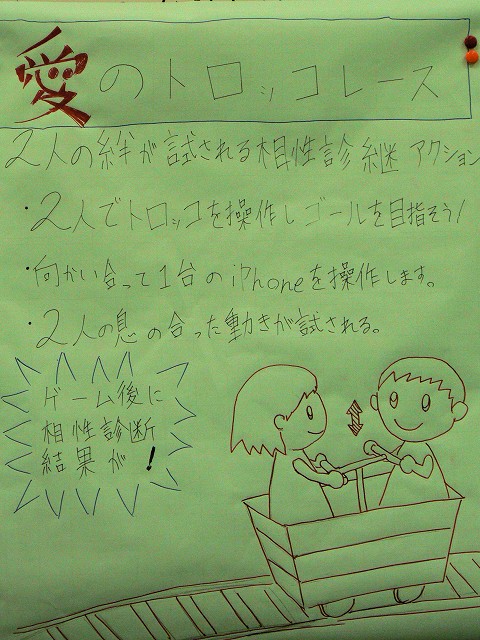 愛のトロッコレース
2人の絆が試される相性診継アクション
・2人でトロッコを操作しゴールを目指そう!
・向かい合って1台のiPhoneを操作します。
・2人の息の合った動きが試される。
ゲーム後に
相性診断
結果が!